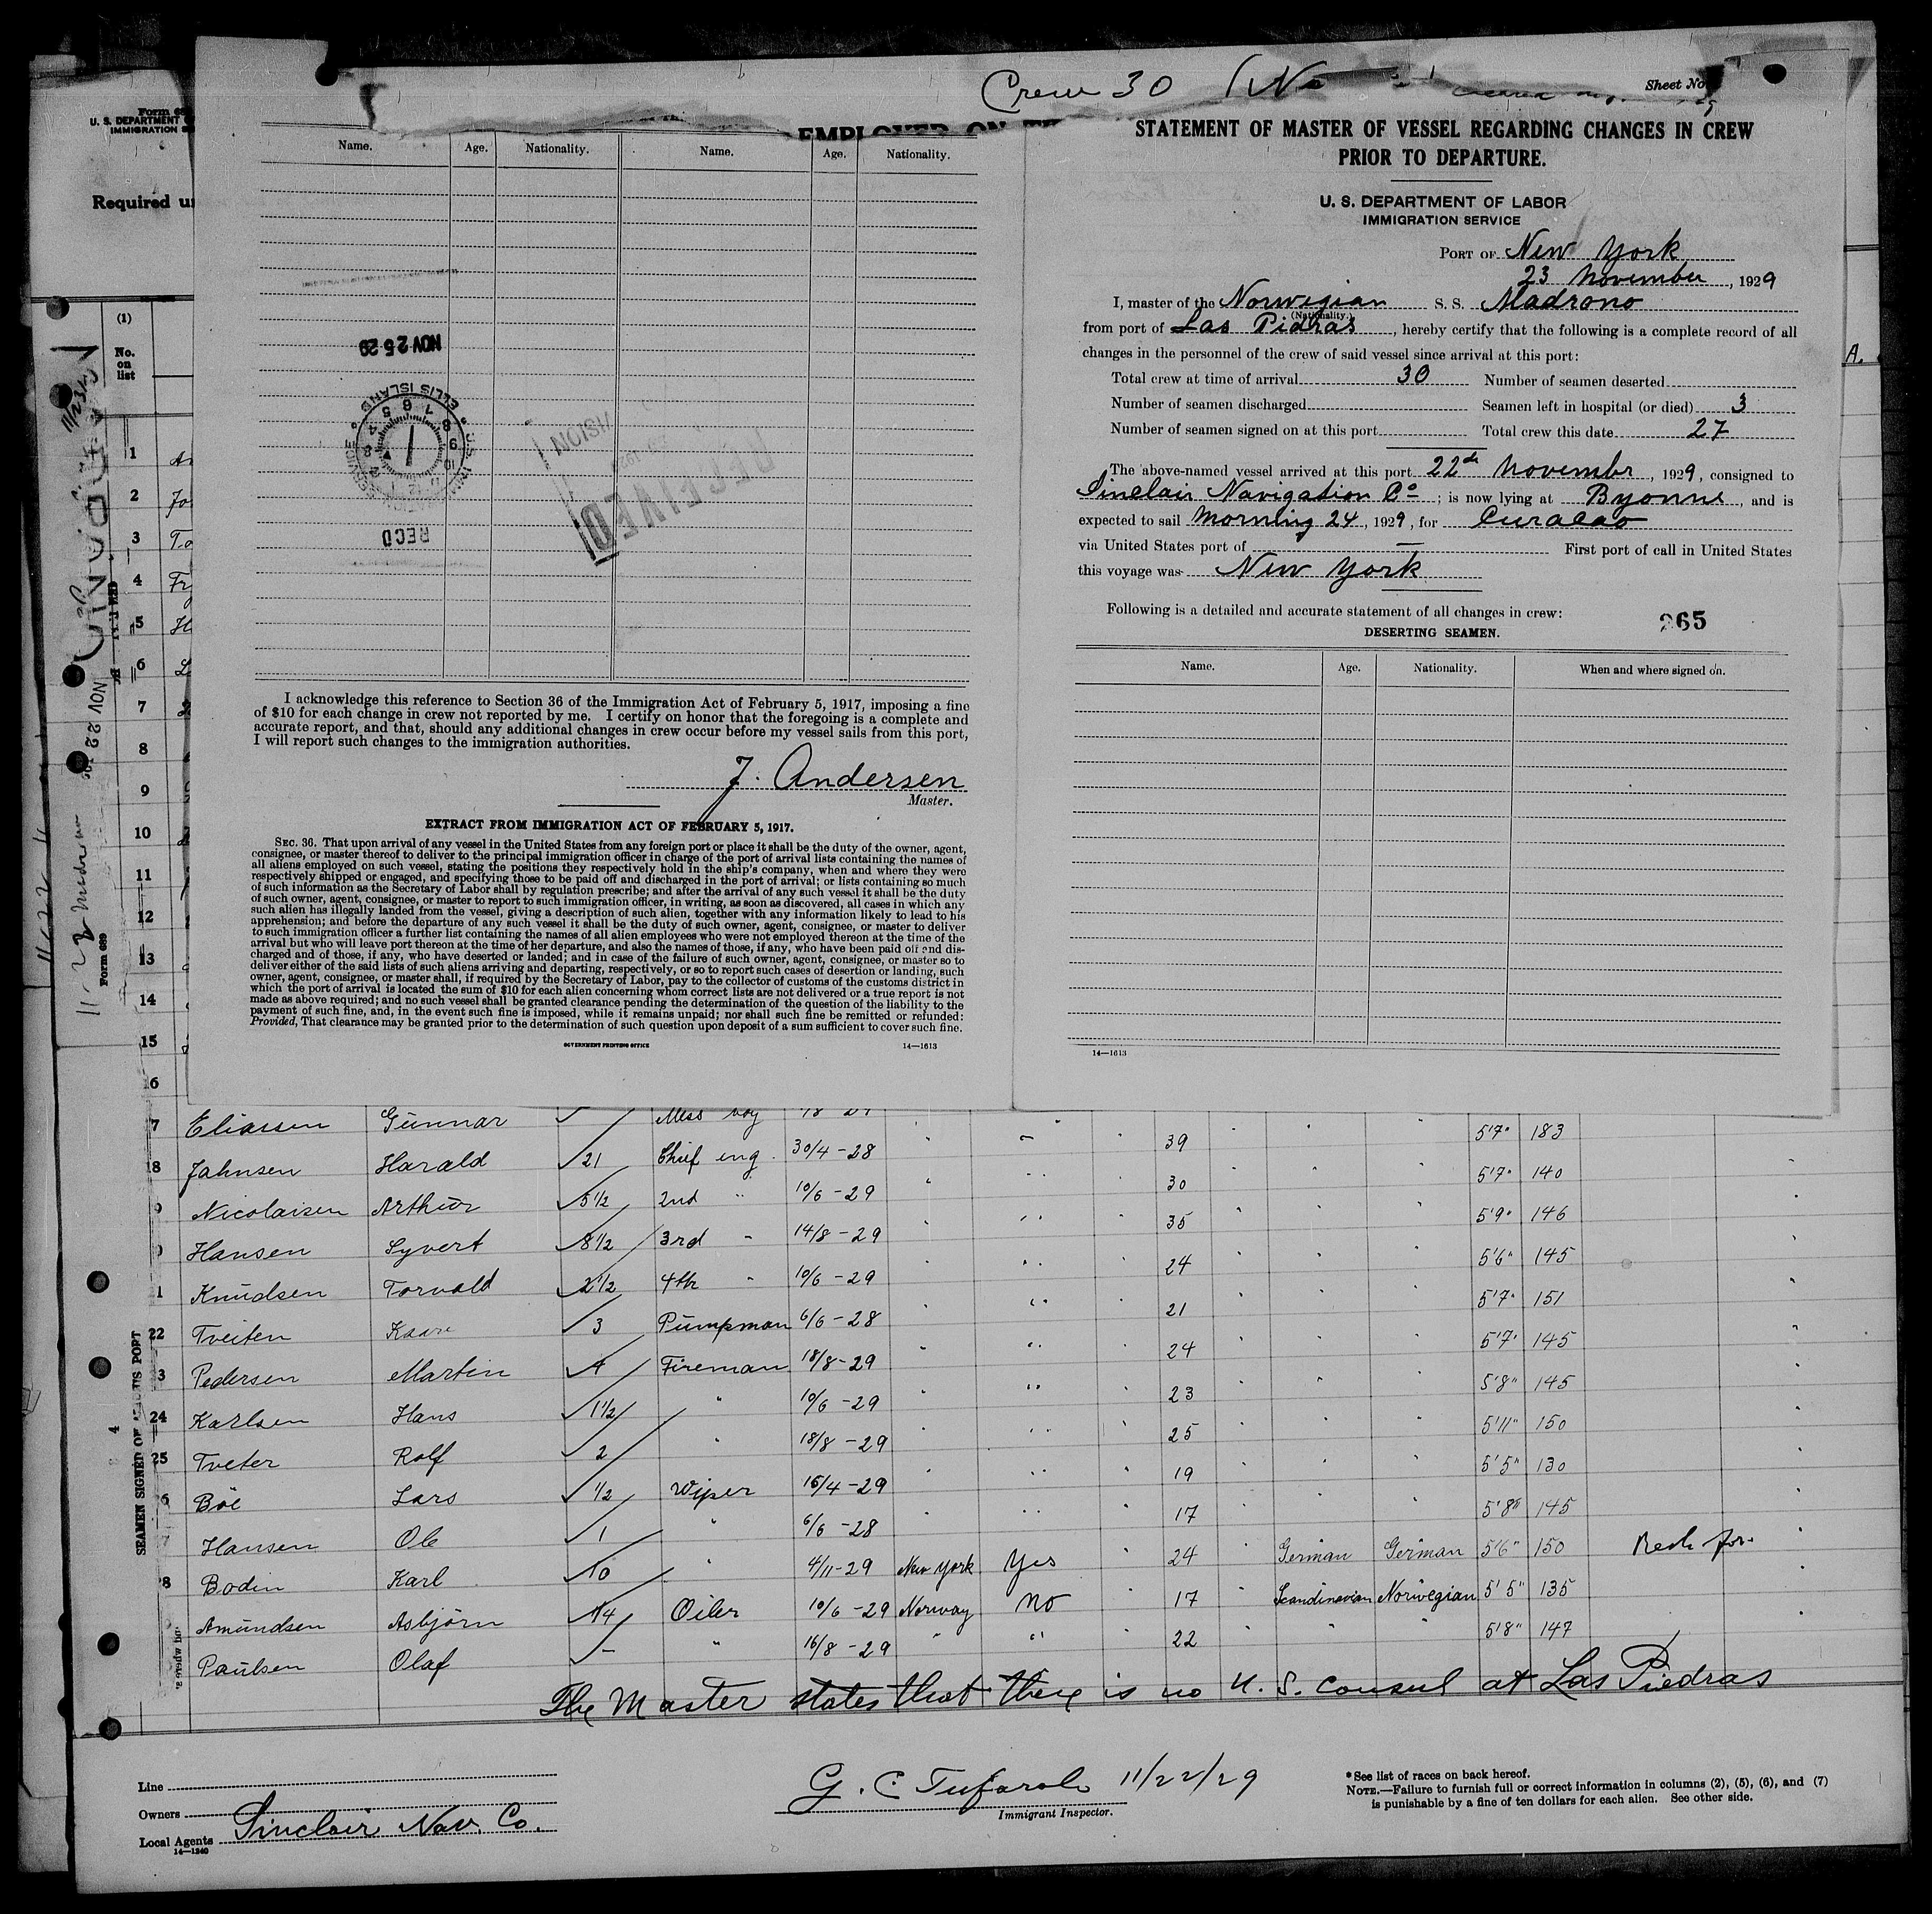 Crew 30
Sheet No.
Form 689
U. S. DEPARTMENT
IMMIGRATION
Required
(1)
No. on list
Name. Age. Nationality. Name. Age. Nationality.
NOV 25 29
ELLIS ISLAND
RECD
RECEIVED
I acknowledge this reference to Section 36 of the Immigration Act of February 5, 1917, imposing a fine
of $10 for each change in crew not reported by me. I certify on honor that the foregoing is a complete and
accurate report, and that, should any additional changes in crew occur before my vessel sails from this port,
I will report such changes to the immigration authorities.
J. Andersen
Master.
EXTRACT FROM IMMIGRATION ACT OF FEBRUARY 5, 1917.
SEC. 36. That upon arrival of any vessel in the United States from any foreign port or place it shall be the duty of the owner, agent,
consignee, or master thereof to deliver to the principal immigration officer in charge of the port of arrival lists containing the names of
all aliens employed on such vessel, stating the positions they respectively hold in the ship's company, when and where they were
respectively shipped or engaged, and specifying those to be paid off and discharged in the port of arrival; or lists containing so much
of such information as the Secretary of Labor shall by regulation prescribe; and after the arrival of any such vessel it shall be the duty
of such owner, agent, consignee, or master to report to such immigration officer, in writing, as soon as discovered, all cases in which any
such alien has illegally landed from the vessel, giving a description of such alien, together with any information likely to lead to his
apprehension; and before the departure of any such vessel it shall be the duty of such owner, agent, consignee, or master to deliver
to such immigration officer a further list containing the names of all alien employees who were not employed thereon at the time of the
arrival but who will leave port thereon at the time of her departure, and also the names of those, if any, who have been paid off and dis-
charged and of those, if any, who have deserted or landed; and in case of the failure of such owner, agent, consignee, or master so to
deliver either of the said lists of such aliens arriving and departing, respectively, or so to report such cases of desertion or landing, such
owner, agent, consignee, or master shall, if required by the Secretary of Labor, pay to the collector of customs of the customs district in
which the port of arrival is located the sum of $10 for each alien concerning whom correct lists are not delivered or a true report is not
made as above required; and no such vessel shall be granted clearance pending the determination of the question of the liability to the
payment of such fine, and, in the event such fine is imposed, while it remains unpaid; nor shall such fine be remitted or refunded:
Provided, That clearance may be granted prior to the determination of such question upon deposit of a sum sufficient to cover such fine.
GOVERNMENT PRINTING OFFICE 14—1613
STATEMENT OF MASTER OF VESSEL REGARDING CHANGES IN CREW
PRIOR TO DEPARTURE.
U. S. DEPARTMENT OF LABOR
IMMIGRATION SERVICE
PORT OF New York
23 November, 1929
I, master of the Norwegian S. S. Madrono
(Nationality.)
from port of Las Pidras, hereby certify that the following is a complete record of all
changes in the personnel of the crew of said vessel since arrival at this port:
Total crew at time of arrival 30 Number of seamen deserted
Number of seamen discharged Seamen left in hospital (or died) 3
Number of seamen signed on at this port Total crew this date 27
The above-named vessel arrived at this port 22de Novembr, 1929, consigned to
Sinclair Navigation Co; is now lying at Byonne, and is
expected to sail Morning 24, 1929, for Curacao
via United States port of — First port of call in United States
this voyage was New York
Following is a detailed and accurate statement of all changes in crew:
265
DESERTING SEAMEN.
Name. Age. Nationality. When and where signed on.
14—1613
1
2
3
4
5
6
7
8
9
10
11
12
13
14
15
6
7 Eliassen Gunnar Mess boy 39 5'7" 183
8 Jahnsen Harald 21 Chief eng. 30/4-28 30 5'7" 140
9 Nicolaisen Arthur 5½ 2nd " 10/6-29 35 5'9" 146
Hansen Syvert 8½ 3rd " 14/8-29 24 5'6" 145
1 Knudsen Torvald 2½ 4th " 10/6-29 21 5'7" 151
22 Tveiten Kaare 3 Pumpman 6/6-28 24 5'7" 145
3 Pedersen Martin 4 Fireman 18/8-29 23 5'8" 145
24 Karlsen Hans 1½ " 10/6-29 25 5'11" 150
25 Tveter Rolf 2 " 18/8-29 19 5'5" 130
6 Böe Lars ½ Wiper 15/4-29 17 5'8" 145
7 Hansen Ole 1 " 6/6-28 24 German German 5'6" 150
8 Bodin Karl 10 " 4/11-29 New York Yes 17 Scandinavian Norwegian 5'5" 135
Amundsen Asbjörn 4 Oiler 10/6-29 Norway No 22 5'8" 147
Paulsen Olaf — " 16/8-29 " "
The Master states that there is no U. S. Consul at Las Piedras
Line
Owners
Local Agents Sinclair Nav. Co.
14—1240
G. C. Tufarolo 11/22/29
Immigrant Inspector.
*See list of races on back hereof.
NOTE.—Failure to furnish full or correct information in columns (2), (5), (6), and (7)
is punishable by a fine of ten dollars for each alien. See other side.